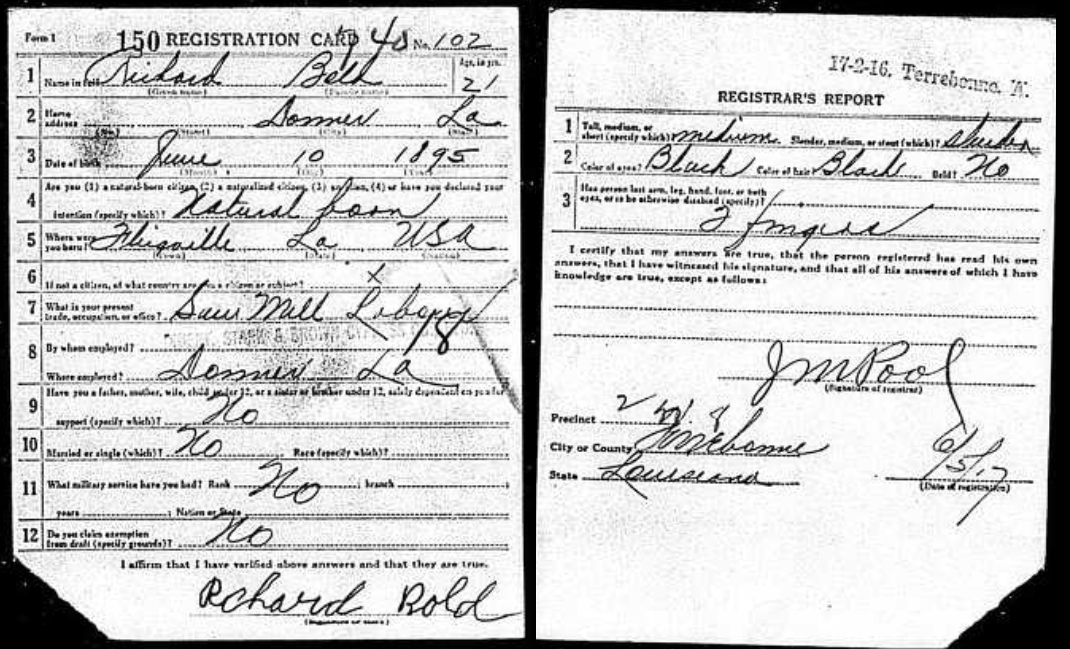 Form 1 150 REGISTRATION CARD 40 No. 102
1 Name in full Richard Bold Age, in yrs. 21
(Given name) (Family name)
2 Home address Donner La
(No.) (Street) (City) (State)
3 Date of birth June 10 1895
(Month) (Day) (Year)
4 Are you (1) a natural-born citizen, (2) a naturalized citizen, (3) an alien, (4) or have you declared your
intention (specify which)? Natural born
5 Where were you born? La USA
(Town) (State) (Nation)
6 If not a citizen, of what country are you a citizen or subject? x
7 What is your present trade, occupation, or office? Saw Mill
8 By whom employed? STARK & BROWN CYPRESS
Where employed? Donner La
9 Have you a father, mother, wife, child under 12, or a sister or brother under 12, solely dependent on you for
support (specify which)? No
10 Married or single (which)? No Race (specify which)?
11 What military service have you had? Rank No ; branch ;
years ; Nation or State
12 Do you claim exemption from draft (specify grounds)? No
I affirm that I have verified above answers and that they are true.
Rchard Bold
(Signature or mark)
17-2-16. Terrebonne, W.
REGISTRAR'S REPORT
1 Tall, medium, or short (specify which)? medium Slender, medium, or stout (which)? slender
2 Color of eyes? Black Color of hair? Black Bald? No
3 Has person lost arm, leg, hand, foot, or both
eyes, or is he otherwise disabled (specify)?
2 fingers
I certify that my answers are true, that the person registered has read his own
answers, that I have witnessed his signature, and that all of his answers of which I have
knowledge are true, except as follows:
J M Pool
(Signature of registrar)
Precinct 2
City or County Terrebonne
State Louisiana 6/5/17
(Date of registration)